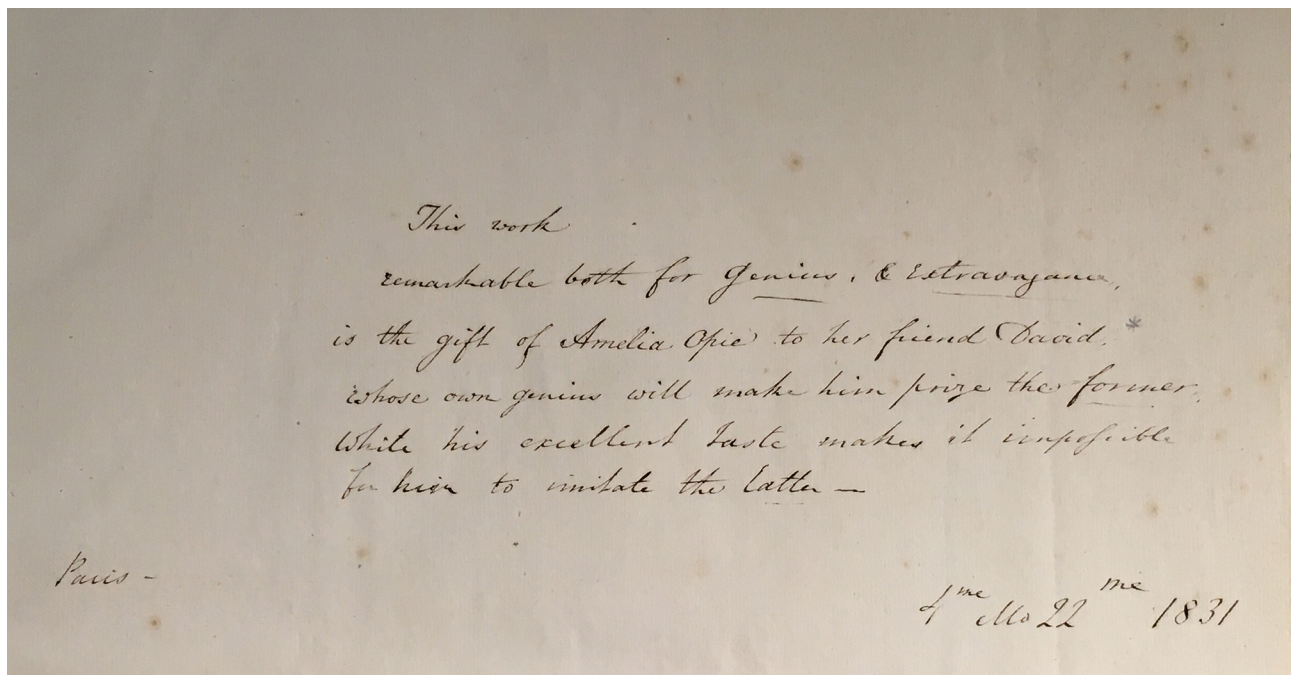 This work
remarkable both for Genius, & Extravagance,
is the gift of Amelia Opie to her friend David, *
whose own genius will make him prize the former,
while his excellent taste makes it impossible
for him to imitate the latter —
Paris -
4me Mo 22me 1831